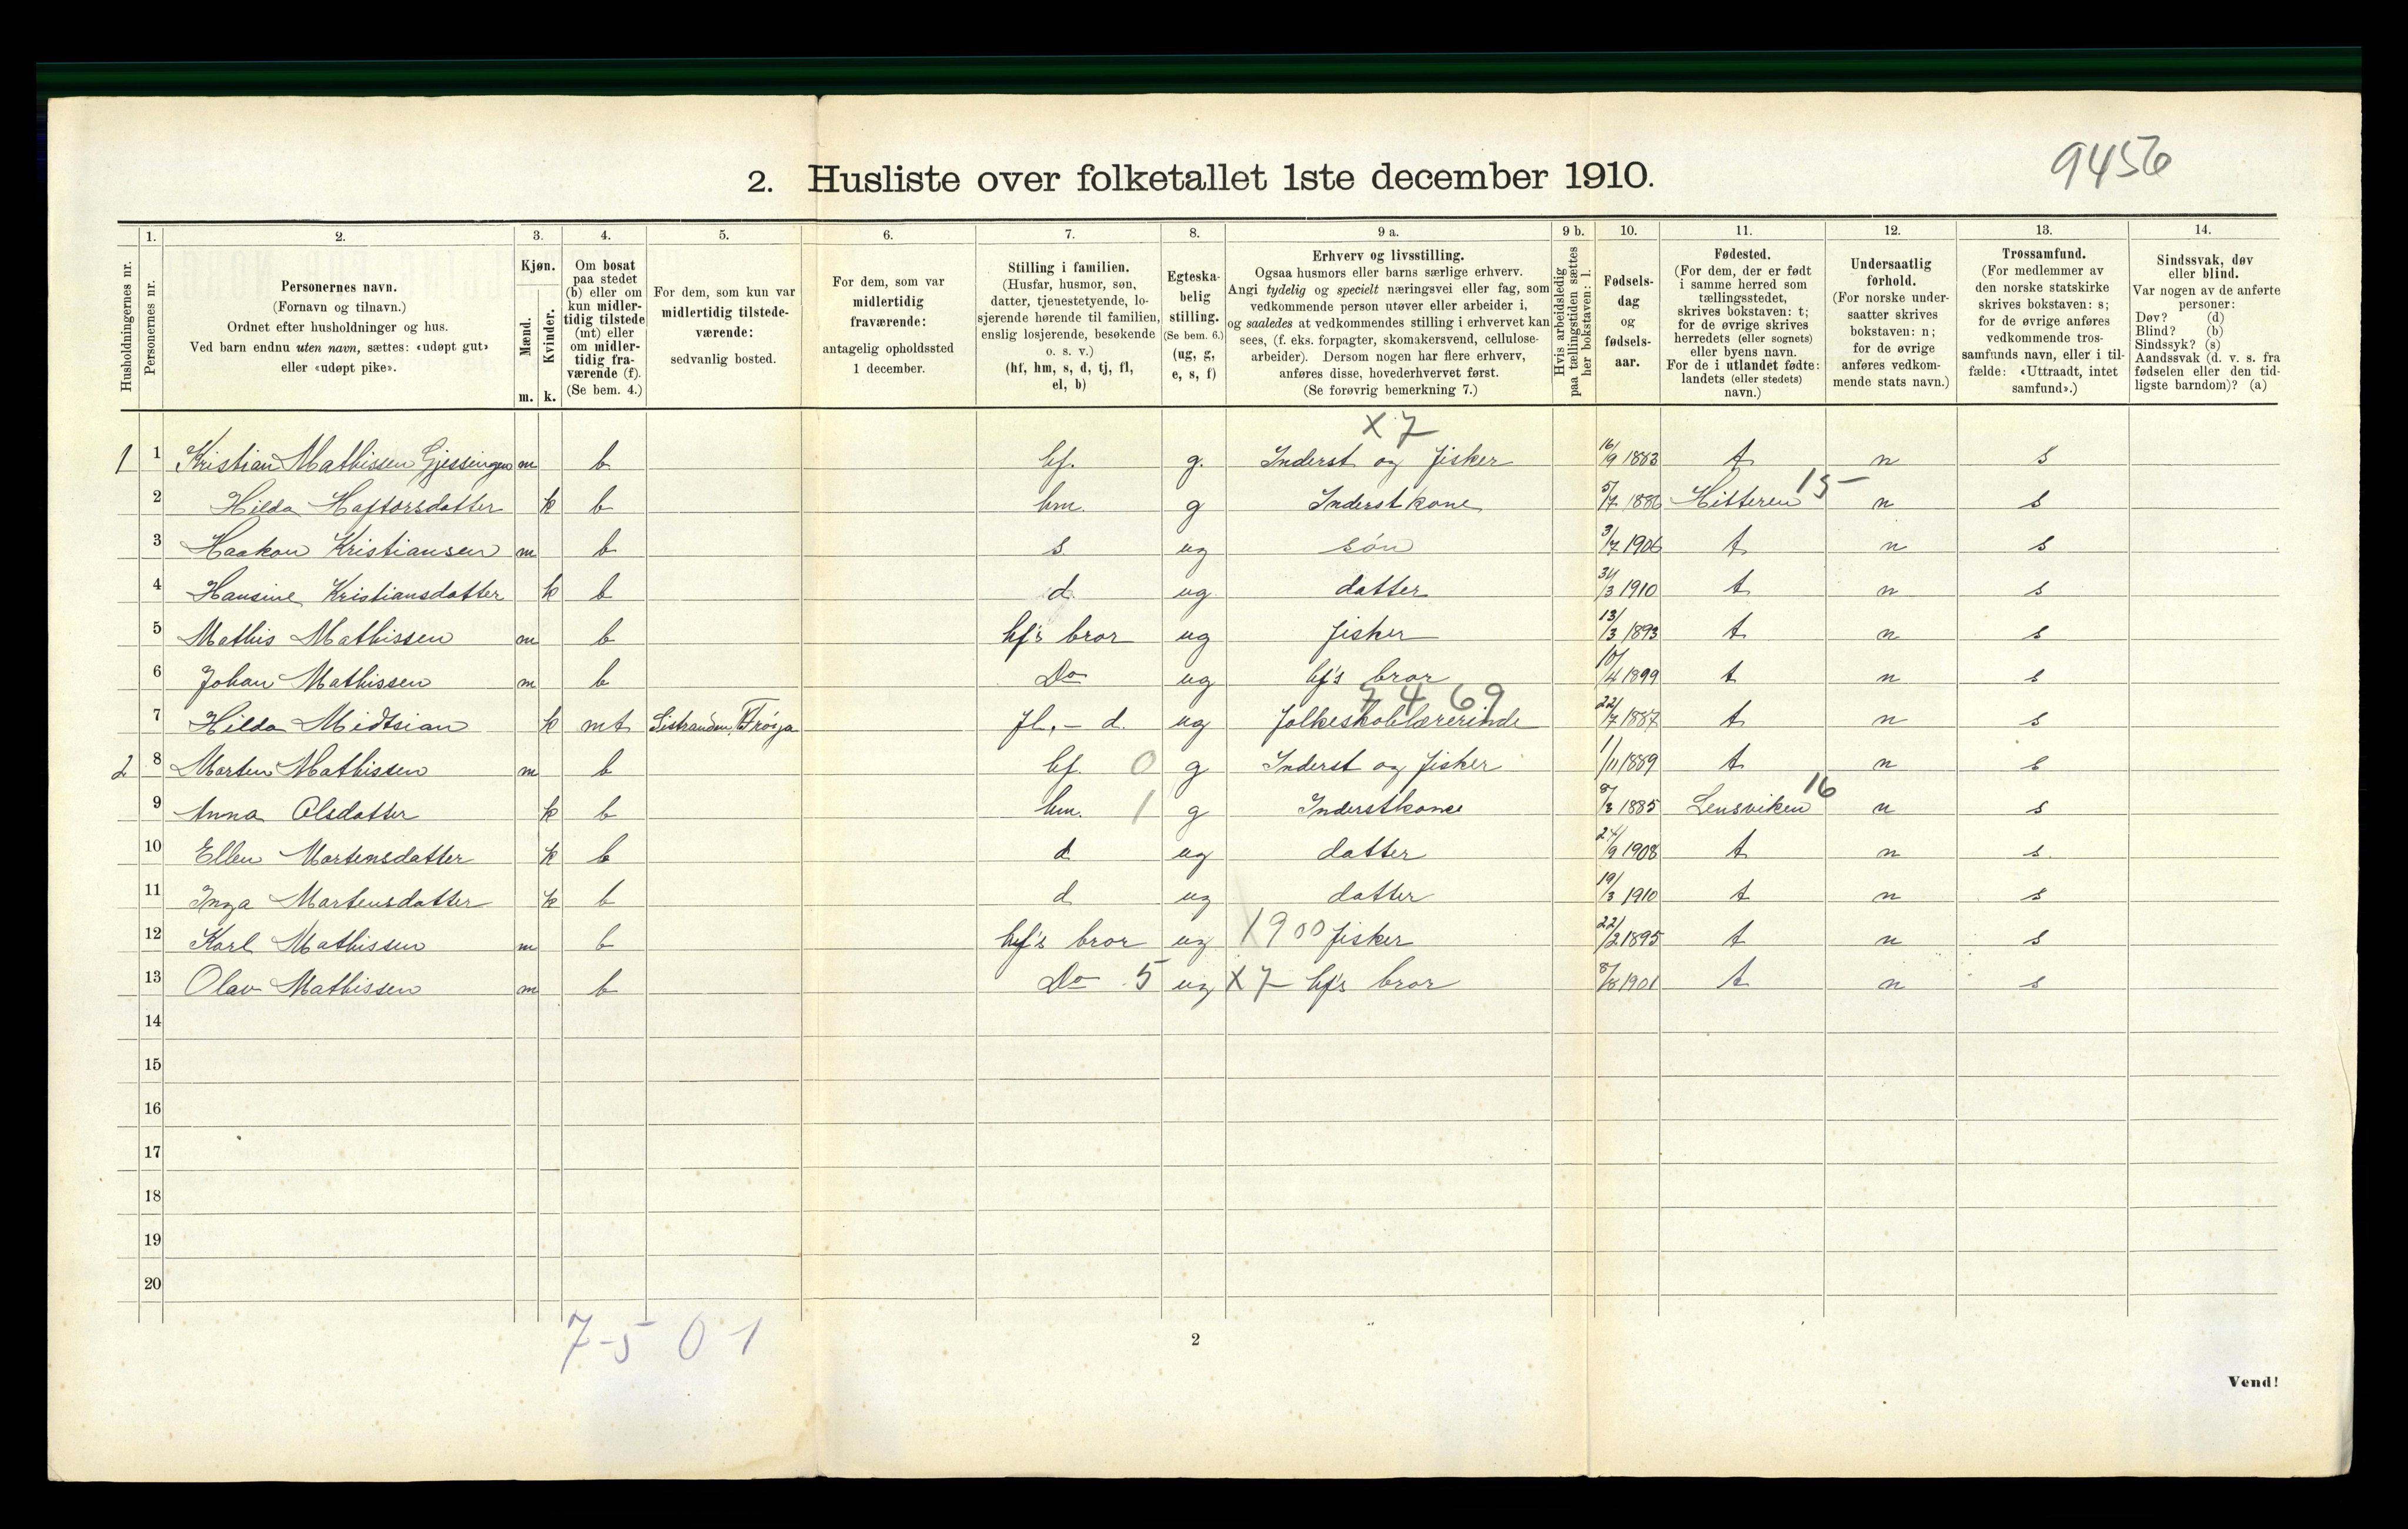 9456
2. Husliste over folketallet 1ste december 1910.
1. 2. 3. 4. 5. 6. 7. 8. 9 a. 9 b. 10. 11. 12. 13. 14.
Husholdningernes nr.
Personernes nr.
Personernes navn.
(Fornavn og tilnavn.)
Ordnet efter husholdninger og hus.
Ved barn endnu uten navn, sættes: «udøpt gut»
eller «udøpt pike».
Kjøn.
Mænd.
Kvinder.
m. k.
Om bosat
paa stedet
(b) eller om
kun midler-
tidig tilstede
(mt) eller
om midler-
tidig fra-
værende (f).
(Se bem. 4.)
For dem, som kun var
midlertidig tilstede-
værende:
sedvanlig bosted.
For dem, som var
midlertidig
fraværende:
antagelig opholdssted
1 december.
Stilling i familien.
(Husfar, husmor, søn,
datter, tjenestetyende, lo-
sjerende hørende til familien,
enslig losjerende, besøkende
o. s. v.)
(hf, hm, s, d, tj, fl,
el, b)
Egteska-
belig
stilling.
(Se bem. 6.)
(ug, g,
e, s, f)
Erhverv og livsstilling.
Ogsaa husmors eller barns særlige erhverv.
Angi tydelig og specielt næringsvei eller fag, som
vedkommende person utøver eller arbeider i,
og saaledes at vedkommendes stilling i erhvervet kan
sees, (f. eks. forpagter, skomakersvend, cellulose-
arbeider). Dersom nogen har flere erhverv,
anføres disse, hovederhvervet først.
(Se forøvrig bemerkning 7.)
Hvis arbeidsledig
paa tællingstiden sættes
her bokstaven: l.
Fødsels-
dag
og
fødsels-
aar.
Fødested.
(For dem, der er født
i samme herred som
tællingsstedet,
skrives bokstaven: t;
for de øvrige skrives
herredets (eller sognets)
eller byens navn.
For de i utlandet fødte:
landets (eller stedets)
navn.)
Undersaatlig
forhold.
(For norske under-
saatter skrives
bokstaven: n;
for de øvrige
anføres vedkom-
mende stats navn.)
Trossamfund.
(For medlemmer av
den norske statskirke
skrives bokstaven: s;
for de øvrige anføres
vedkommende tros-
samfunds navn, eller i til-
fælde: «Uttraadt, intet
samfund».)
Sindssvak, døv
eller blind.
Var nogen av de anførte
personer:
Døv? (d)
Blind? (b)
Sindssyk? (s)
Aandssvak (d. v. s. fra
fødselen eller den tid-
ligste barndom)? (a)
X 7
1 1 Kristian Mathissen Gjessingen m b hf. g. Inderst og fisker 16/9 1883 t n s
15
2 Hilda Haftorsdatter k b hm. g Inderstkone 5/7 1886 Hitteren n s
3 Haakon Kristiansen m b s ug søn 3/7 1906 t n s
4 Hansine Kristiansdatter k b d. ug datter 31/3 1910 t n s
5 Mathis Mathissen m b hf's bror ug fisker 13/3 1893 t n s
6 Johan Mathissen m b Do ug hf's bror 10/4 1899 t n s
7 4 69
7 Hilda Midtsian k mt Sistranden, Frøya fl, - d. ug folkeskolelærerinde 22/7 1887 t n s
2 8 Morten Mathissen m b hf. 0 g Inderst og fisker 1/11 1889 t n s
16
9 Anna Olsdatter k b hm. 1 g Inderstkone 8/3 1885 Lensviken n s
10 Ellen Mortensdatter k b d ug datter 24/9 1908 t n s
11 Inga Mortensdatter k b d ug datter 19/3 1910 t n s
12 Karl Mathissen m b hf's bror ug X900 fisker 22/2 1895 t n s
13 Olav Mathissen m b Do 5 ug X7 hf's bror 8/8 1901 t n s
14
15
16
17
18
19
20
7-5 0 1
2
Vend!